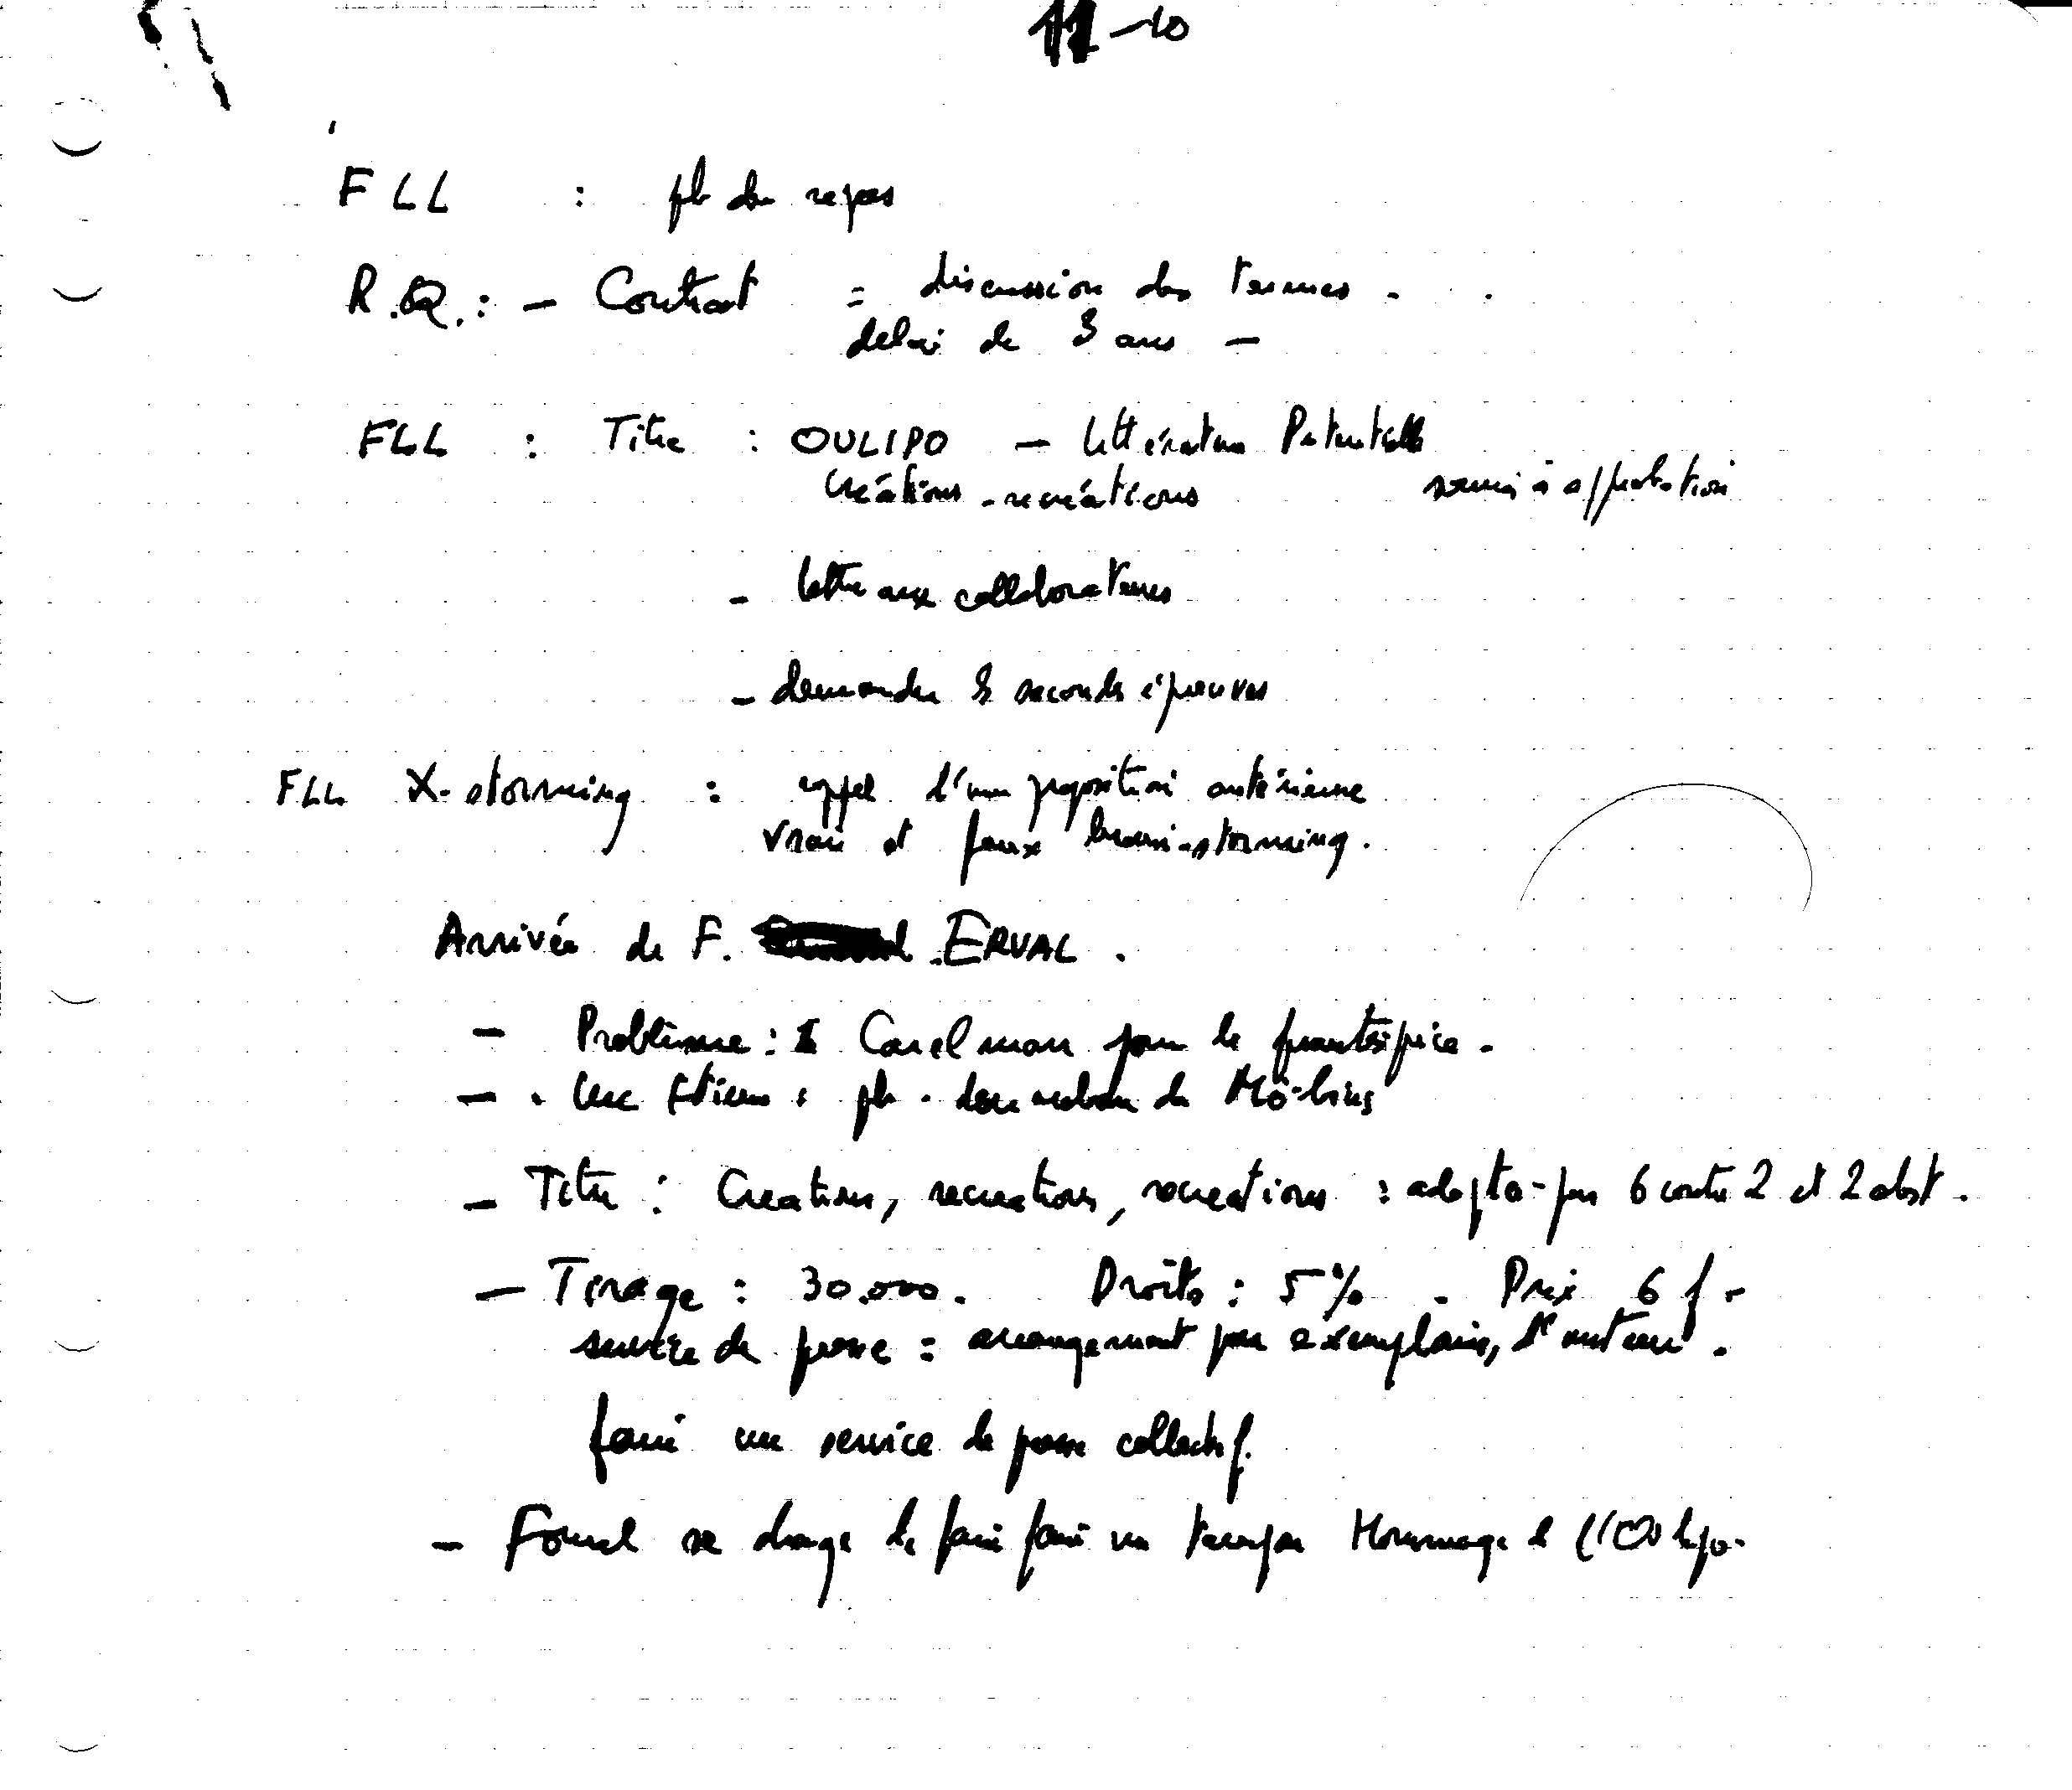 11-10
FLL : pb du repas
R.Q. : - Contrat = discussion des termes.
délai de 3 ans -
FLL : Titre : OULIPO - littérature Potentielle
créations - recréations soumis à approbation
- lettre aux collaborateurs
- demander 3 secondes épreuves
FLL X-storming : rappel d'une proposition antérieure
vrai et faux brain-storming.
Arrivée de F. ERVAL.
- Problème : Carelman pour le frontispice.
- Luc Etienne : pb. du ruban de Mö-bius
- Titre : Creations, recreations, recreations : adopté par 6 contre 2 et 2 abst.
- Tirage : 30.000. Droits : 5% . Prix 6 f -
service de presse = arrangement par exemplaires d'auteur.
faire un service de presse collectif.
- Fournel se charge de faire faire un tampon Hommage de l'Oulipo.